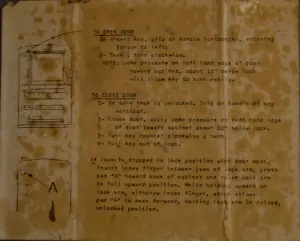 TO OPEN DOOR
1- Insert key, grip on handle horizontal, entering
tongue to left.
2- Turn ½ turn clockwise.
NOTE: Some pressure on left hand edge of door,
toward cabinet, about 12" below lock
will allow key to turn easily.
TO CLOSE DOOR
1- Be sure lock is unlocked,
vertical.
2- Close door, apply some pressure on left hand edge
of door toward cabinet about 12" below lock.
3- Turn key counter clockwise ½ turn.
4- Pull key out of lock.
If lock is dropped to lock position with door open,
insert index finger between jaws of lock arm, press
pad "A" toward back of cabinet and raise lock arm
to full upward position. While holding upward on
lock arm, withdraw index finger, which allows
pad "A" to move forward, holding lock arm in raised,
unlocked position.
A